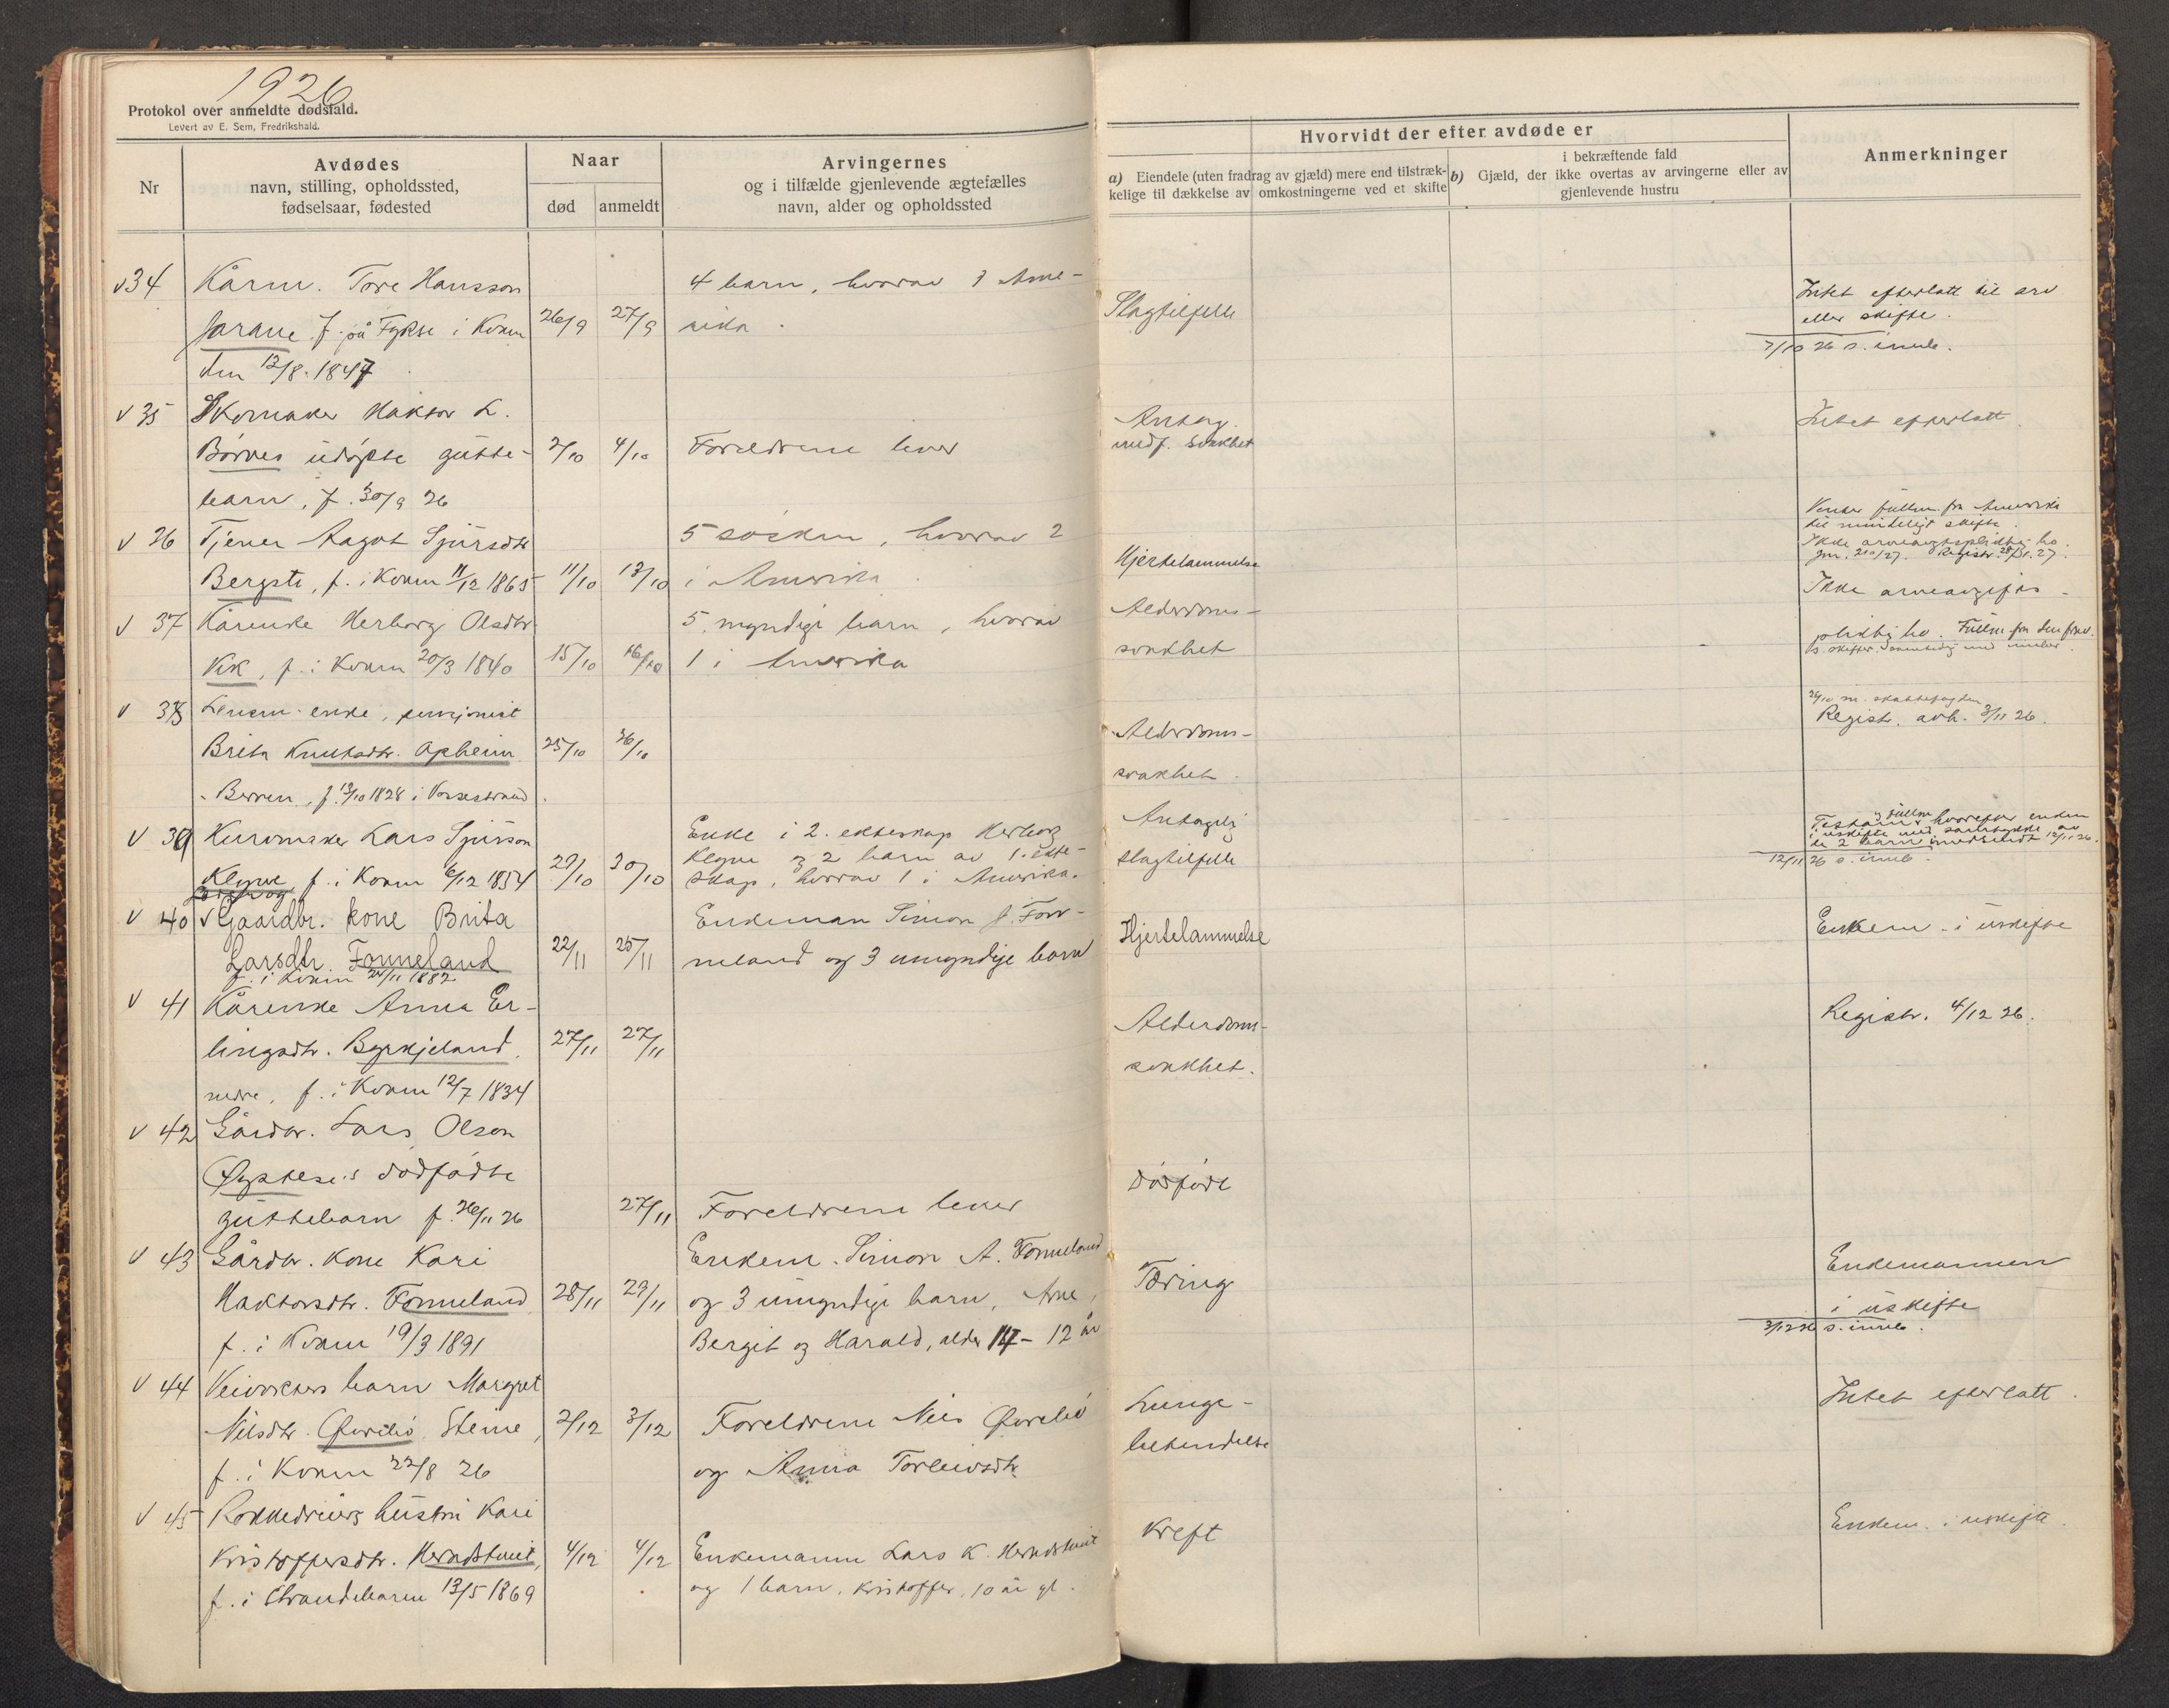 1926
Protokol over anmeldte dødsfald.
Levert av E. Sem, Fredrikshald.
Nr
Avdødes
navn, stilling, opholdssted,
fødselsaar, fødested
Naar
død
anmeldt
Arvingernes
og i tilfælde gjenlevende ægtefælles
navn, alder og opholdssted
Hvorvidt der efter avdøde er
a) Eiendele (uten fradrag av gjæld) mere end tilstræk-
kelige til dækkelse av omkostningerne ved et skifte
b) i bekræftende fald
Gjæld, der ikke overtas av arvingerne eller av
gjenlevende hustru
Anmerkninger
v 34 Kårm. Tore Hansson
Jarane f. på Fykse i Kvam 26/9 27/9
den 12/8.1847
4 barn, hvorav 1 Ame-
rika.
Slagtilfelle
Intet efterlatt til arv
eller skifte.
7/10 26 s. innb.
v 35 Skomaker Haktor L.
Börves udöpte gutte- 2/10 4/10 Foreldrene lever
barn, f. 30/9 26
Antag.
medf. svakhet
Intet efterlatt.
v 36 Tjener Aagot Sjursdtr
Bergste, f. i Kvam 11/12 1865 11/10 13/10
5 søsken, hvorav 2
i Amerika.
Hjertelammelse
Venter fullm. fra Amerika
til mindeligt skifte.
Ikke arveavgiftspliktig bo.
v 37 Kårenke Herborg Olsdtr
Vik, f. i Kvam 20/3 1840 15/10 16/10
5 myndige barn, hvorav
1 i Amerika
Alderdoms-
svakhet
Ikke arveavgifts-
pliktig bo.
v 38 Lensm. enke, pensjonist
Brita Knutsdtr. Opheim 25/10 26/10
Berven, f. 13/10 1828 i Vossestrand.
Alderdoms-
svakhet.
Registr. avh. 3/11 26.
v 39 Kurvmaker Lars Sjursson
Klyve f. i Kvam 6/12 1854 29/10 30/10
Enke i 2. ekteskap Herborg
Klyve og 2 barn av 1. ekte-
skap, hvorav 1 i Amerika.
Antagelig
slagtilfelle
12/11 26 s. innb.
v 40 v Gaardbr. kone Brita
Larsdtr. Fonneland 22/11 25/11
f. i Kvam 24/11 1882
Enkeman Simon J. Fon-
neland og 3 umyndige barn
Hjertelammelse
Enkem. i uskifte
v 41 Kårenke Anna Er-
lingsdtr. Byrkjeland 27/11 27/11
nedre, f. i Kvam 12/7 1834
Alderdoms-
svakhet.
Registr. 4/12 26.
v 42 Gårdbr. Lars Olson
Øystese's dødfødte
guttebarn f. 26/11 26 27/11 Foreldrene lever
Dødfødt
v 43 Gårdbr. kone Kari
Haktorsdtr. Fonneland 28/11 29/11
f. i Kvam 19/3 1891
Enkem. Simon A. Fonneland
og 3 umyndige barn, Arne,
Bergit og Harald, alder 14 - 12 år
Tæring
Enkemannen
i uskifte
3/12 26 s. innb.
v 44 Veivokters barn Margret
Nilsdtr. Øvrelid Steine, 2/12 3/12
f. i Kvam 22/8 26
Foreldrene Nils Øvrelid
og Anna Torleivsdtr.
Lunge-
betendelse
Intet efterlatt.
v 45 Rokkedreiers hustru Kari
Kristoffersdtr. Herndstveit, 4/12 4/12
f. i Strandebarm 13/5 1869
Enkemann Lars K. Herndstveit
og 1 barn, Kristoffer, 10 år gl.
Kreft
Enkem. i uskifte.